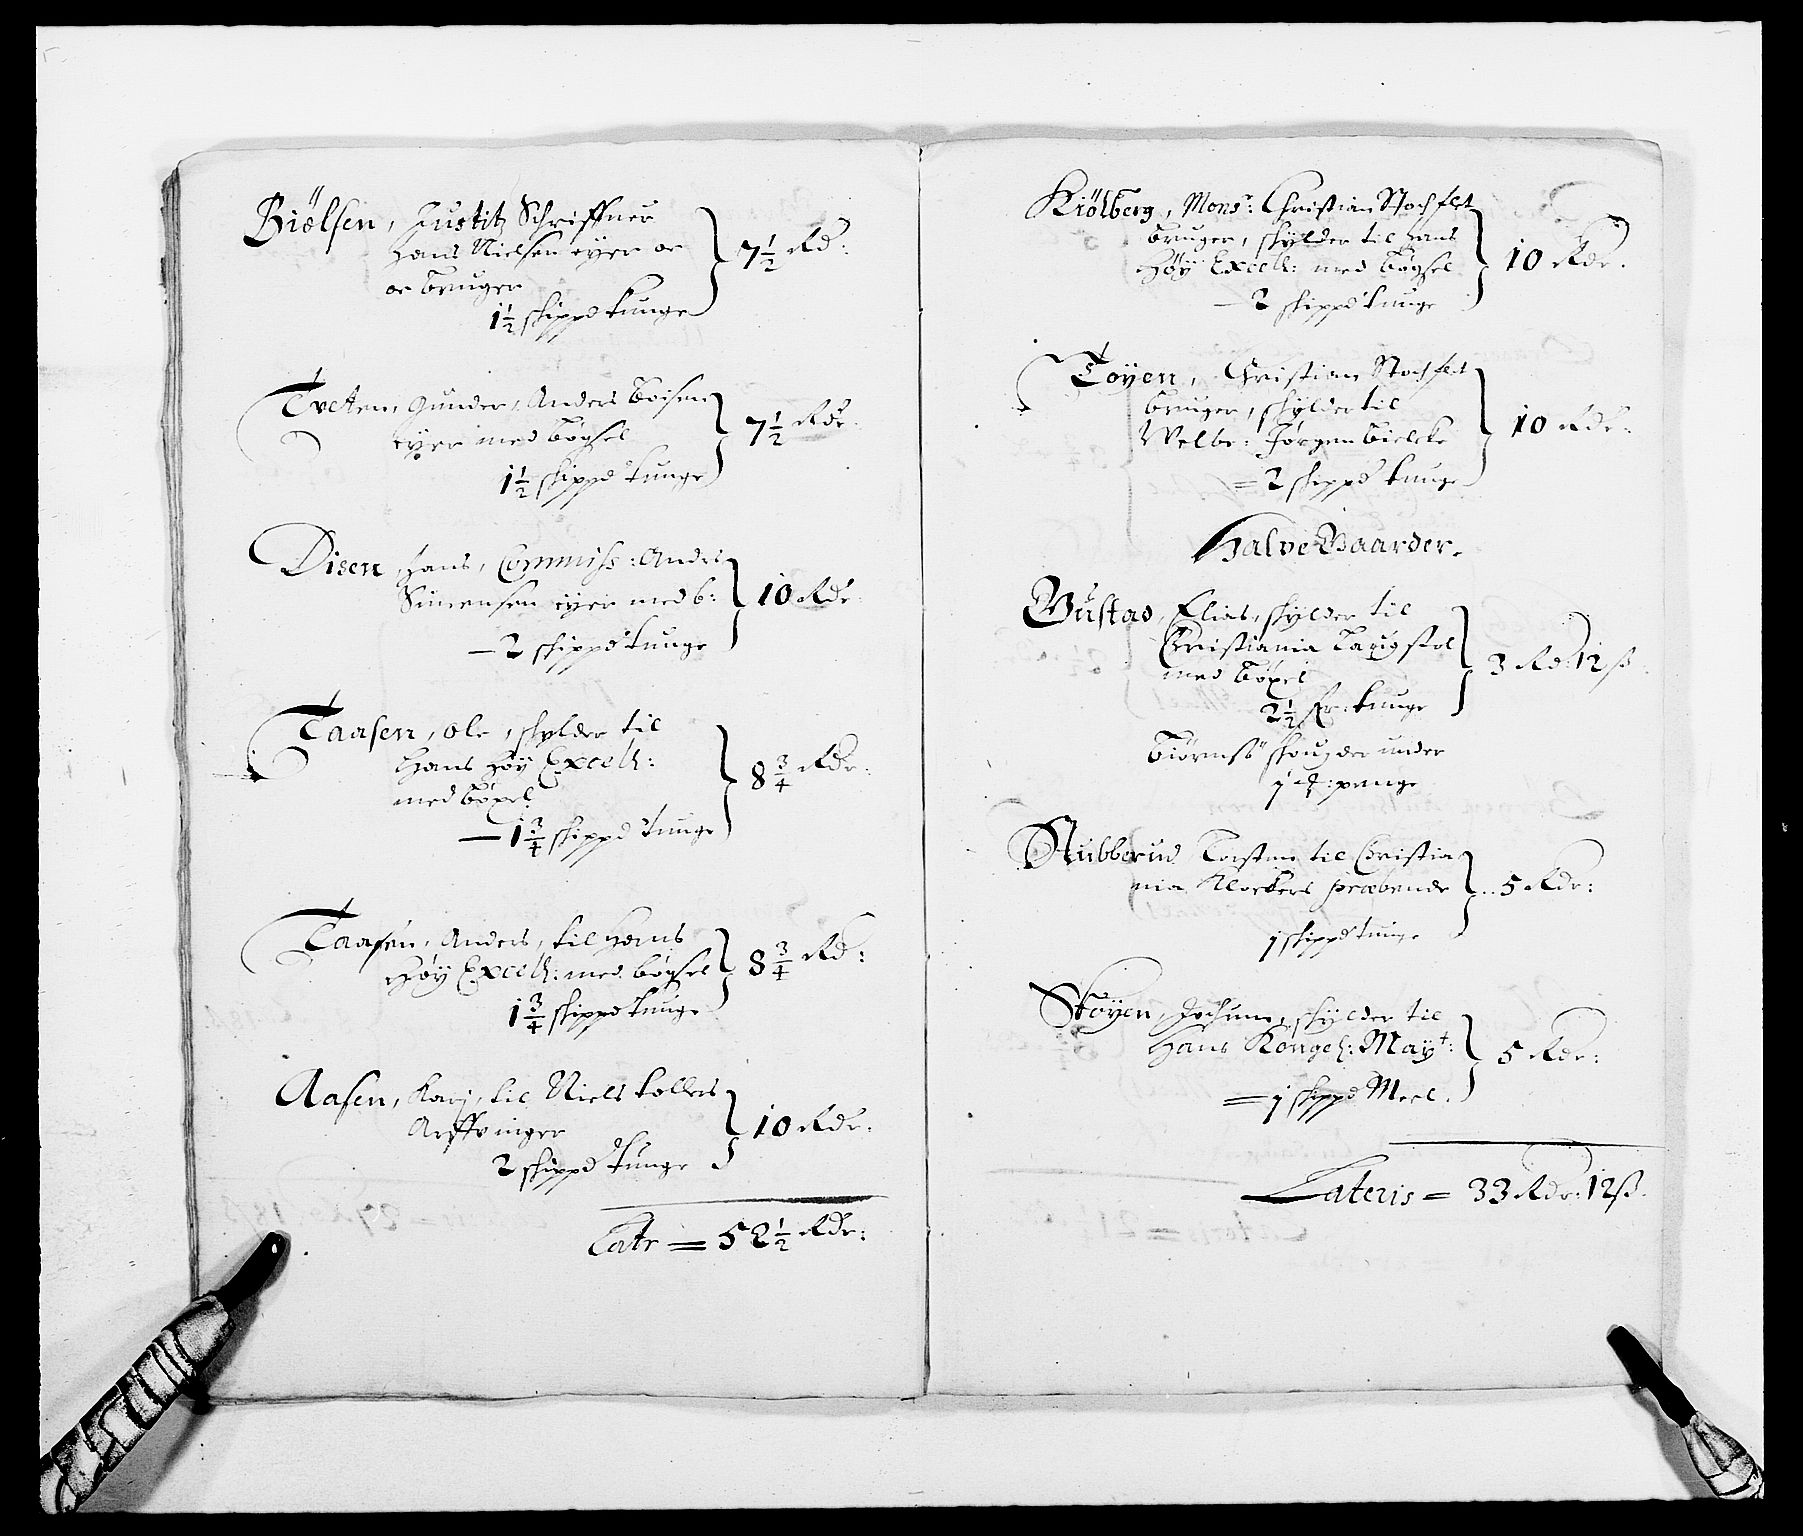 Biølsen, Justitz Schriffuer
Hans Nielsen eyer oc
oc bruger
1½ skippd tunge
7½ Rd:
Tvetten, Gunder, Anders Boisen
eyer med bøgsel
1½ skippd tunge
7½ Rdr.
Disen, Hans, Commiss: Anders
Simensen eyer med b:
– 2 skippd tunge
10 Rdr.
Taasen, Ole, skylder til
Hans Høy Excell:
med bøxel
– 1¾ skippd tunge
8¾ Rdr.
Taasen, Anders, til Hans
Høy Excell: med bøgsel
1¾ skippd tunge
8¾ Rd:
Aasen, Karj, til Niels Tollers
Arffvinger
2 skippd tunge
10 Rdr.
Latr = 52½ Rdr:
Kiølberg, Monsr: Christian Stochflet
bruger, skylder til Hans
Høy Excell: med bøgsel
– 2 skippd tunge
10 Rdr.
Tøyen, Christian Stochflet
bruger, skylder til
Welbr: Jørgen Bielcke
= 2 skippd tunge
10 Rdr.
Halve Gaarder.
Gustad, Elias, skylder til
Christiania Laugstol
med bøxel
2½ Fr: tunge
3 Rd: 12 ß.
Biørnsß skoug der under
1 penge
Nubberud Torsten til Christia
nia Klockers præbende
1 skippd tunge
5 Rdr:
Støyen, Jochum, skylder til
Hans Kongel: Mayt:
= 1 skippd Meel.
5 Rdr:
Lateris = 33 Rdr: 12 ß.